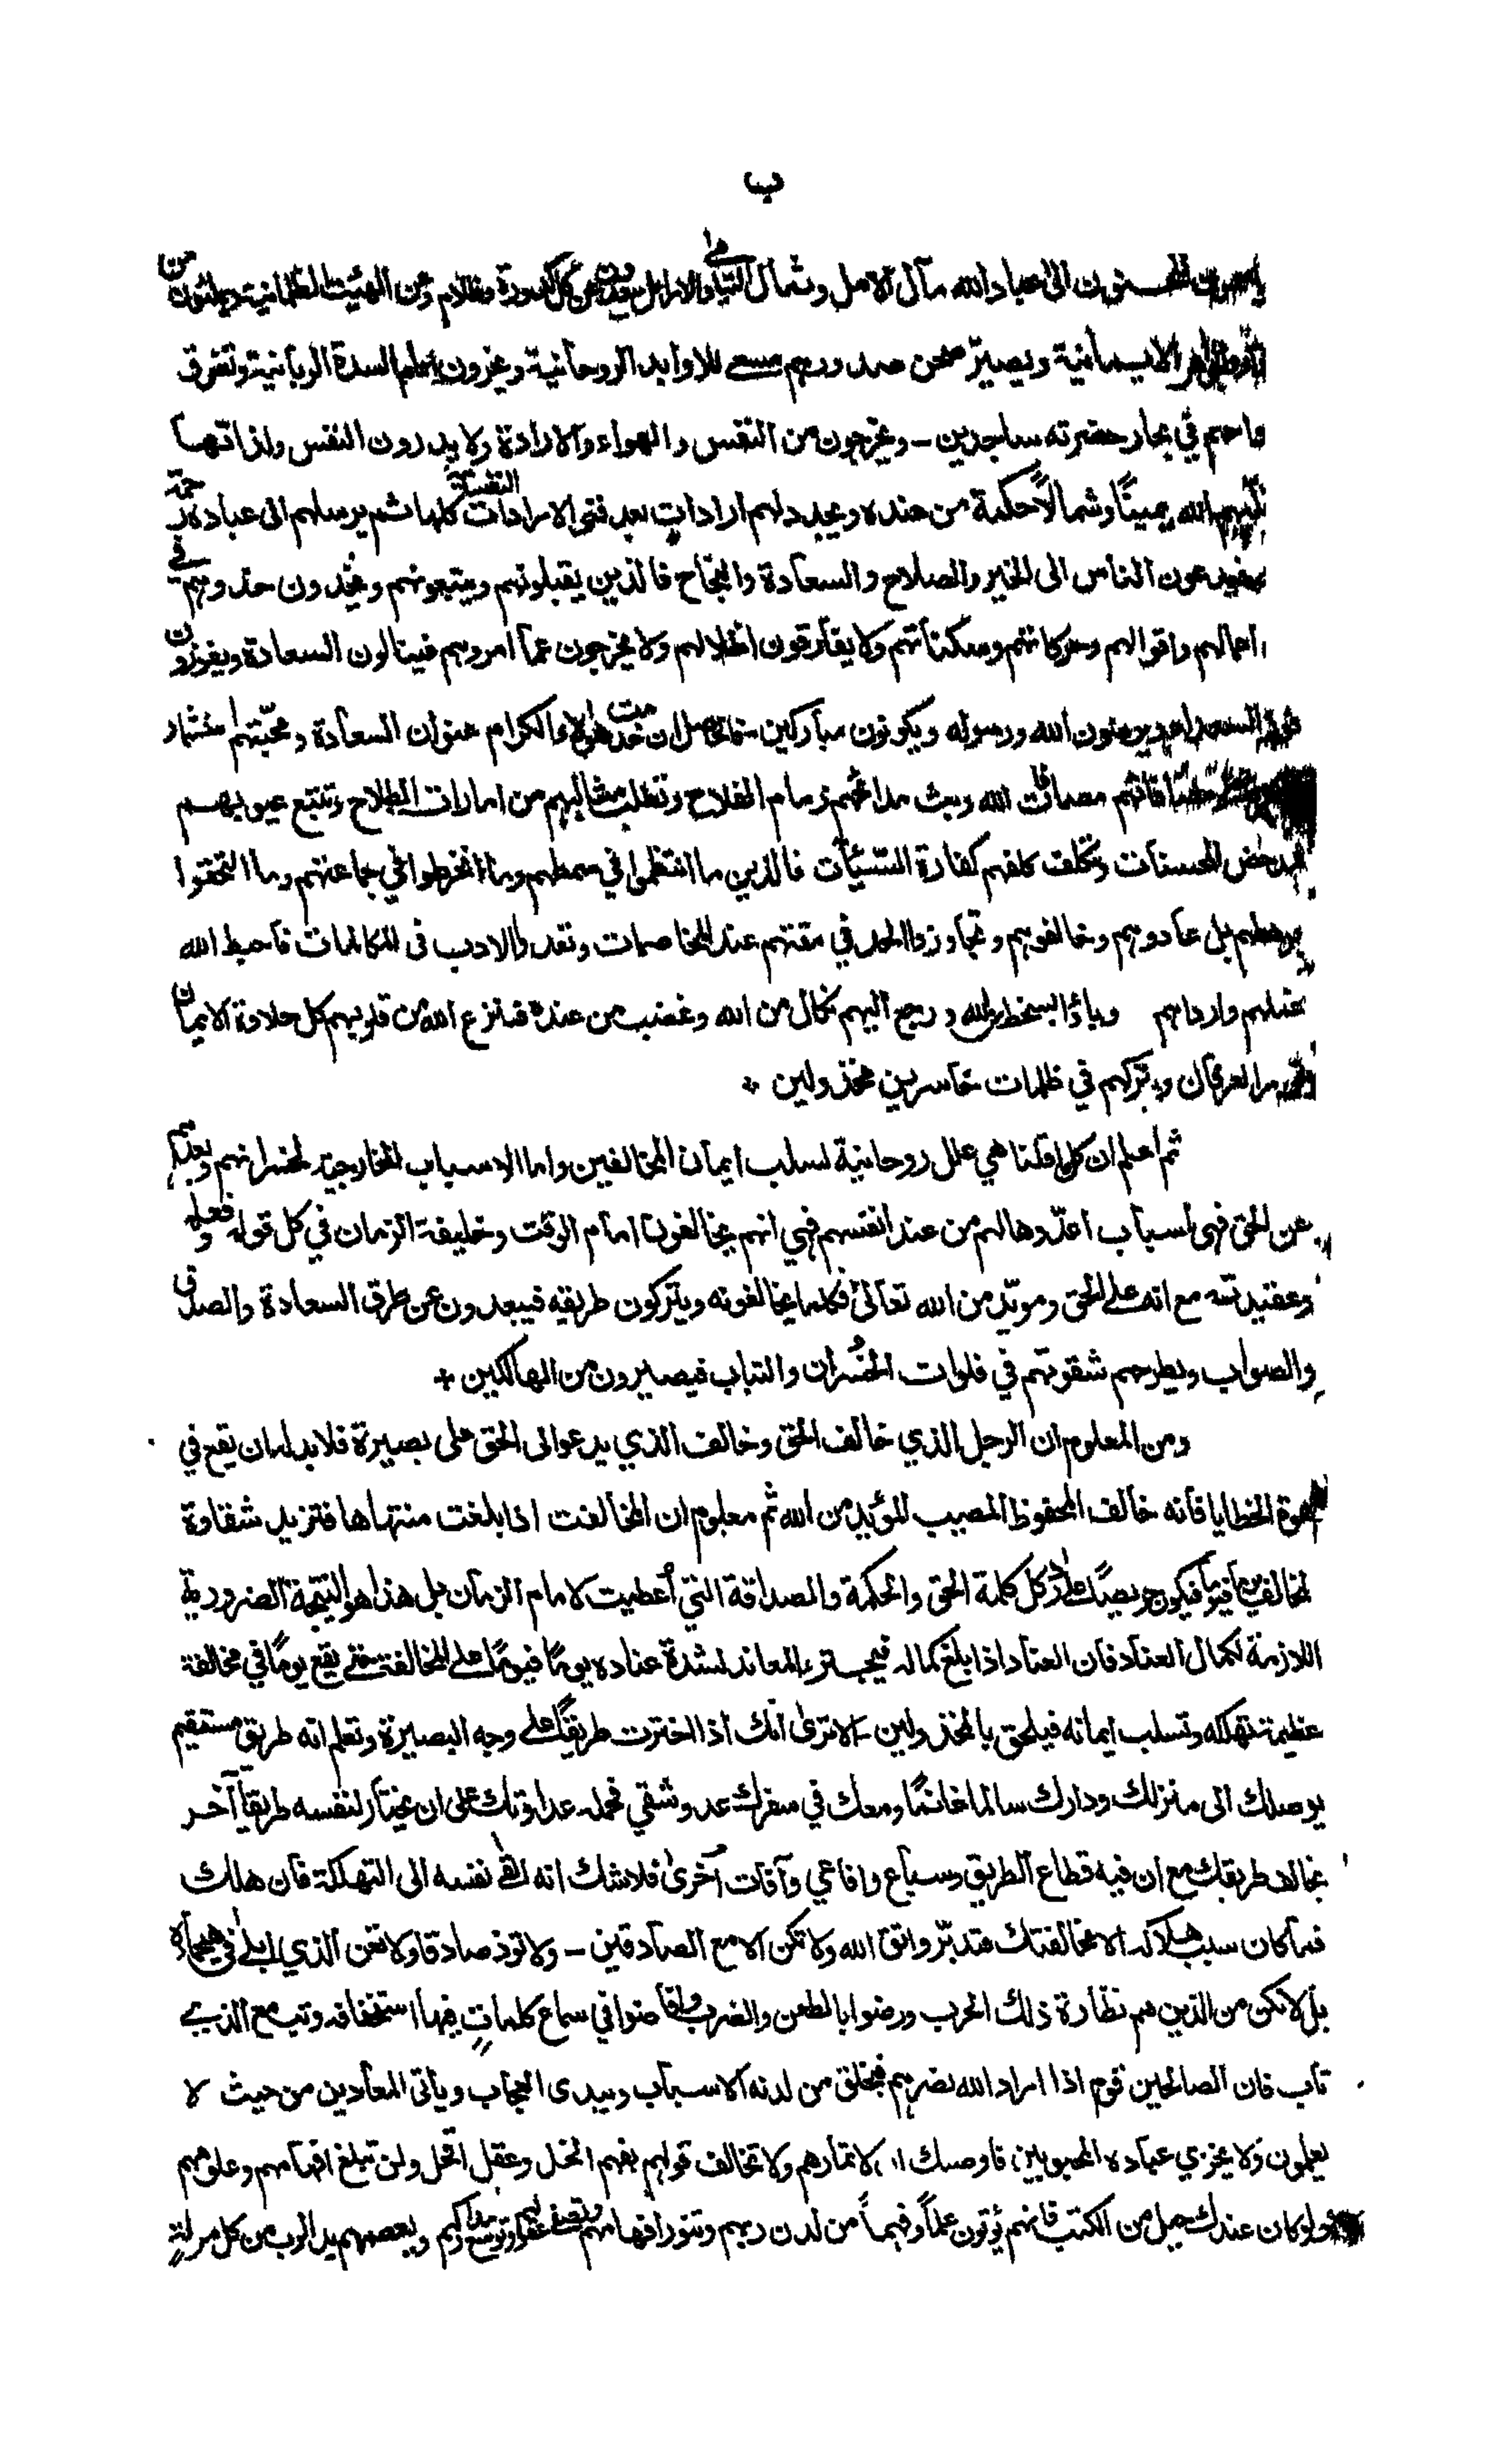 ب
الى عباد الله مآل الامل وثمال اليتامى والارامل كل كدورة وظلام ومن الهيئت الظلمانية من
الايمانية ويصير صحن صدورهم مسعى للاوابد الروحانية ويخرون امام السدة الربانية وتغرق
واحهم في بحار حضرته ساجدين – ويخرجون من النفس والهواء والارادة ولا يدرون النفس ولذاتها
الله يمينًا وشمالًا حكمة من عنده ويجدد لهم ارادات بعد فنى الارادات النفسانية كلها ثم يرسلهم الى عباده رحمة
فيدعون الناس الى الخير والصلاح والسعادة والنجاح فالذين يقبلونهم ويتبعونهم ويحذون حذوهم في
اعمالهم واقوالهم وحركاتهم وسكناتهم ولا يفارقون اظلالهم ولا يخرجون عما امروهم فينالون السعادة ويفوزون
السعداء ويرضون الله ورسوله ويكونون مباركين فالحاصل ان خدمت هؤلاء الكرام عنوان السعادة ومحبتهم
مصافات الله وبث مدائحهم زمام الفلاح وتطلب مثالبهم من امارات الطلاح وتتبع عيوبهم
الحسنات وتكلف كلفهم كفارة السيّئات فالذين ما انتظموا في سمطهم وما انخرطوا في جماعتهم وما التحقوا
برهطهم بل عادوهم وخالفوهم وتجاوزوا الحد في مقتهم عند المخاصمات وفقدوا الادب في المكالمات فاحبط الله
عملهم وباؤا بسخط من الله ورجع اليهم نكال من الله وغضب من عنده فنزع الله من قلوبهم كل حلاوة الايمان
العرفان وتركهم في ظلمات خاسرين مخذولين ٭
ثم اعلم ان كلما قلنا هي علل روحانية لسلب ايمان المخالفين واما الاسباب الخارجية لخسرانهم وبعدهم
عن الحق فهى اسباب اعدّوها لهم من عند انفسهم فهي انهم يخالفون امام الوقت وخليفة الزمان في كل قوله وفعله
وعقيدته مع انه على الحق ومؤيّد من الله تعالىٰ فكلما يخالفونه ويتركون طريقه فيبعدون عن طرق السعادة والصدق
والصواب ويطرحهم شقوتهم في فلوات الخُسران والتباب فيصيرون من الهالكين +
ومن المعلوم ان الرجل الذي خالف الحق وخالف الذي يدعو الى الحق على بصيرة فلا بد له ان يقع في
هوة الخطايا فانه خالف المحفوظ المصيب المؤيد من الله ثم معلوم ان المخالفت اذا بلغت منتهاها فتزيد شقاوة
المخالفين يومًا فيومًا فيكون حريصًا على رد كل كلمة الحق والحكمة والصداقة التي اُعطيت لامام الزمان بل هذا هو النتيجة الضرورية
اللازمة لكمال العناد فان العناد اذا بلغ كماله فيجترء المعاند لشدة عناده يومًا فيومًا على المخالفت حتى يقع يومًا في مخالفة
عظيمة تهلكه وتسلب ايمانه فيلحق بالمخذولين – الا ترى انك اذا اخترت طريقًا على وجه البصيرة وتعلم انه طريق مستقيم
يوصلك الى منزلك ودارك سالما غانمًا ومعك في سفرك عدو شقي فحمله عداوتك على ان يختار لنفسه طريقًا آخر
يخالف طريقك مع ان فيه قطاع الطريق وسباع وافاعي وآفات اُخرىٰ فلا شك انه القى نفسه الى التهلكة فان هلك
فما كان سبب هلاكه الا مخالفتك فتدبّر واتق الله ولا تكن الا مع الصادقين – ولا توذ صادقا ولا تعن الذي ابلى في هيجاءه
بل لا تكن من الذين هم نظارة ذلك الحرب ورضوا بالطعن والضرب وافاضوا في سماع كلماتٍ فيها استخفافه وتب مع الذي
تاب فان الصالحين قوم اذا اراد الله نصرهم فيخلق من لدنه الاسباب ويبدى العجاب وياتى المعادين من حيث لا
يعلمون ولا يخزي عباده المحبوبين فاوصيك ان لا تمارهم ولا تخالف قولهم بفهم انحل وعقل اقحل ولن تبلغ افهامهم وعلومهم
ولو كان عندك جبل من الكتب فانهم يُؤتون علمًا وفهمًا من لدن ربهم وتنور افهامهم وتصفى عقولهم وتوسع مداركهم ويعصمهم يد الرب من كل مزلة